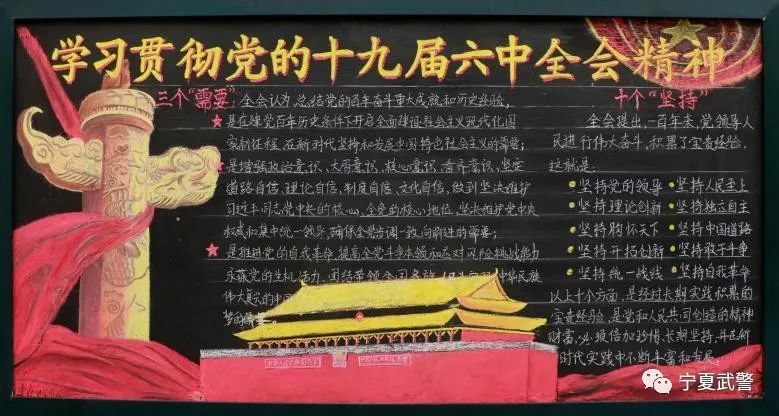 学习贯彻党的十九届六中全会精神
三个“需要”：全会认为，总结党的百年奋斗重大成就和历史经验，
是在建党百年历史条件下开启全面建设社会主义现代化国
家新征程，在新时代坚持和发展中国特色社会主义的需要；
是增强政治意识、大局意识、核心意识、看齐意识，坚定
道路自信、理论自信、制度自信、文化自信，做到坚决维护
习近平同志党中央的核心、全党的核心地位，坚决维护党中央
权威和集中统一领导，确保全党步调一致向前进的需要；
是推进党的自我革命、提高全党斗争本领和应对风险挑战能力
永葆党的生机活力、团结带领全国各族人民为实现中华民族
伟大复兴的中国
梦的
十个“坚持”
全会提出，一百年来，党领导人
民进行伟大奋斗，积累了宝贵经验，
这就是：
坚持党的领导 坚持人民至上
坚持理论创新 坚持独立自主
坚持胸怀天下 坚持中国道路
坚持开拓创新 坚持敢于斗争
坚持统一战线 坚持自我革命
以上十个方面，是经过长期实践积累的
宝贵经验，是党和人民共同创造的精神
财富，必须倍加珍惜、长期坚持，并在新
时代实践中不断丰富和发展。
宁夏武警